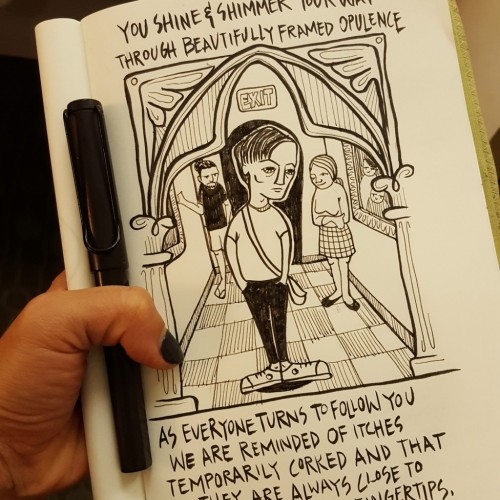 YOU SHINE & SHIMMER YOUR WAY
THROUGH BEAUTIFULLY FRAMED OPULENCE
EXIT
AS EVERYONE TURNS TO FOLLOW YOU
WE ARE REMINDED OF ITCHES
TEMPORARILY CORKED AND THAT
THEY ARE ALWAYS CLOSE TO
FINGERTIPS.